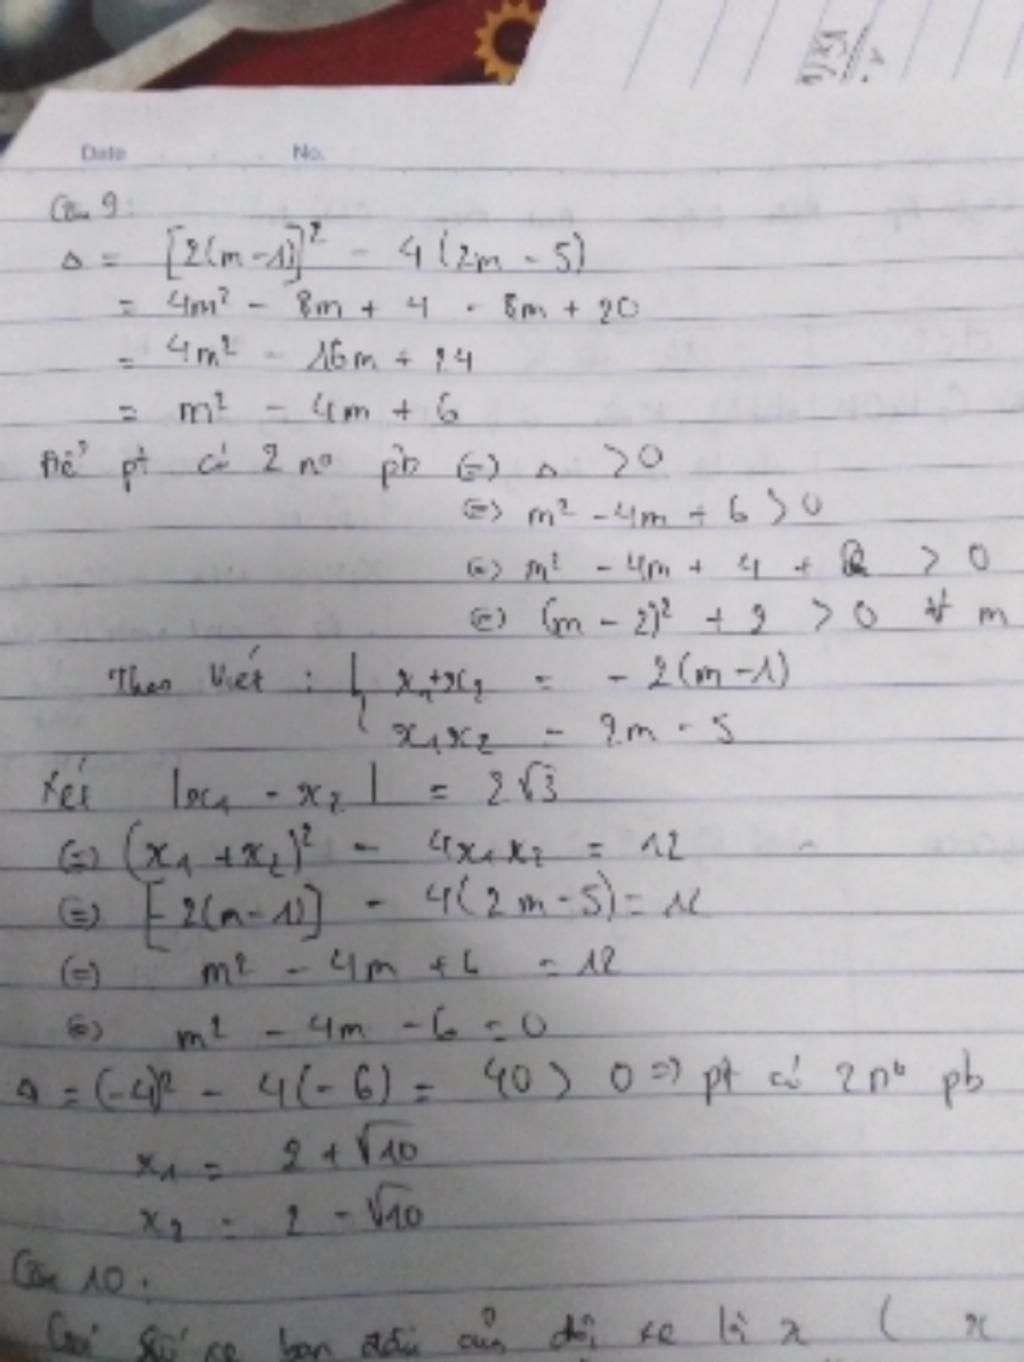 Date No.
Câu 9:
Δ = [2(m-1)]² - 4(2m-5)
= 4m² - 8m + 4 - 8m + 20
= 4m² - 16m + 24
= m² - 4m + 6
Để pt có 2 nº pb (=) Δ > 0
(=) m² - 4m + 6 > 0
(=) m² - 4m + 4 + 2 > 0
(=) (m - 2)² + 2 > 0 ∀ m
Theo Viét : { x₁+x₂ = - 2(m-1)
x₁x₂ = 2m - 5
Xét |x₁ - x₂| = 2√3
(=) (x₁ + x₂)² - 4x₁x₂ = 12
(=) [-2(m-1)] - 4(2m-5) = 12
(=) m² - 4m + 6 = 12
(=) m² - 4m - 6 = 0
Δ = (-4)² - 4(-6) = 40 > 0 => pt có 2 nº pb
x₁ = 2 + √10
x₂ = 2 - √10
Câu 10:
Gọi số xe ban đầu của đội xe là x ( x